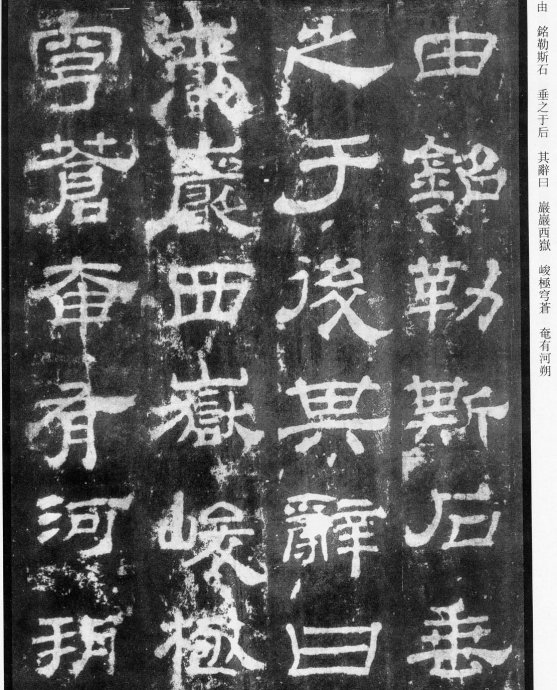 由 銘勒斯石 垂之于后 其辭曰 巖巖西嶽 峻極穹蒼 奄有河朔
由銘勒斯石垂
之于後其辭曰
巖巖西嶽峻極
穹蒼奄有河朔